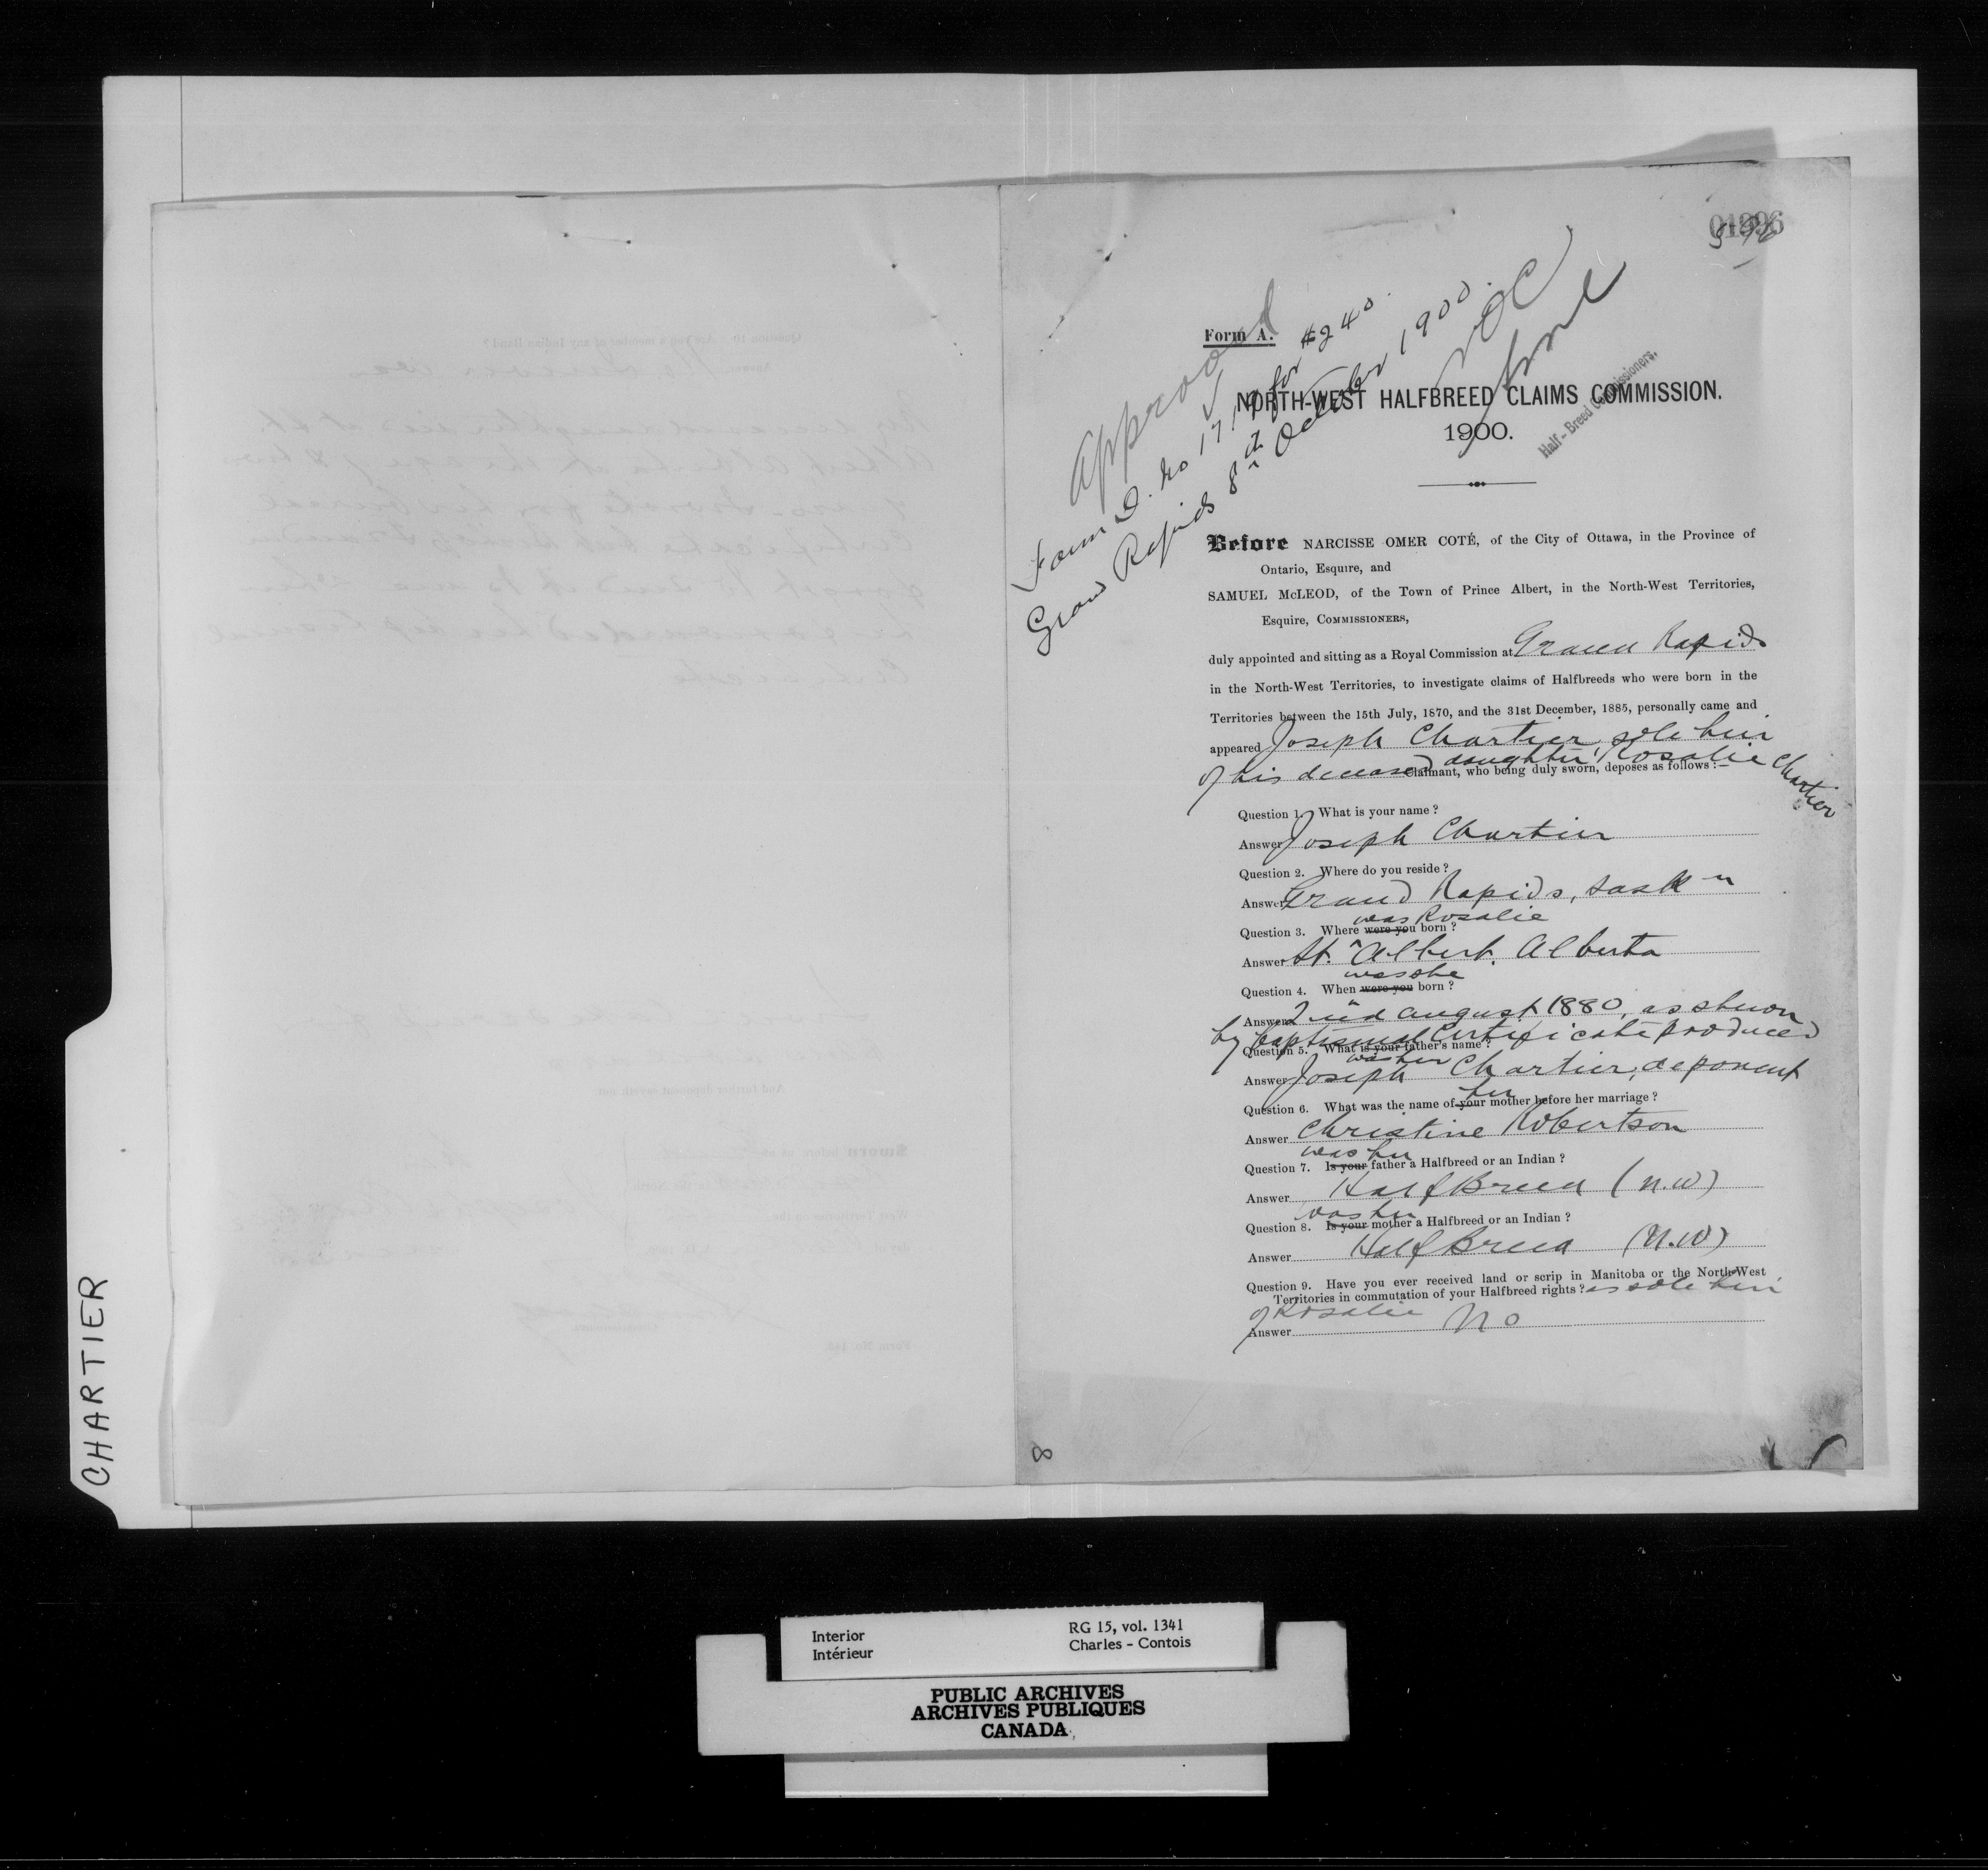 Approved
Form D. No 1719 for $240.
Grand Rapids 8th October 1900.
NOC
Half-Breed Commissioners.
Form A.
NORTH-WEST HALFBREED CLAIMS COMMISSION.
1900.
Before NARCISSE OMER COTÉ, of the City of Ottawa, in the Province of
Ontario, Esquire, and
SAMUEL McLEOD, of the Town of Prince Albert, in the North-West Territories,
Esquire, COMMISSIONERS,
duly appointed and sitting as a Royal Commission at Grand Rapids
in the North-West Territories, to investigate claims of Halfbreeds who were born in the
Territories between the 15th July, 1870, and the 31st December, 1885, personally came and
appeared Joseph Chartier, sole heir
of his deceased daughter, Rosalie Chartier
Claimant, who being duly sworn, deposes as follows:—
Question 1. What is your name?
Answer Joseph Chartier
Question 2. Where do you reside?
Answer Grand Rapids, Sask n
was Rosalie
Question 3. Where were you born?
Answer St. Albert. Alberta
was she
Question 4. When were you born?
Answer 2nd August 1880, as shown
by baptismal certificate produced
Question 5. What is your father's name?
was her
Answer Joseph Chartier, deponent
her
Question 6. What was the name of your mother before her marriage?
Answer Christine Robertson
was her
Question 7. Is your father a Halfbreed or an Indian?
Answer HalfBreed (N.W)
was her
Question 8. Is your mother a Halfbreed or an Indian?
Answer HalfBreed (N.W)
Question 9. Have you ever received land or scrip in Manitoba or the North-West
Territories in commutation of your Halfbreed rights? as sole heir
of Rosalie
Answer No
8
CHARTIER
Interior
Intérieur
RG 15, vol. 1341
Charles - Contois
PUBLIC ARCHIVES
ARCHIVES PUBLIQUES
CANADA